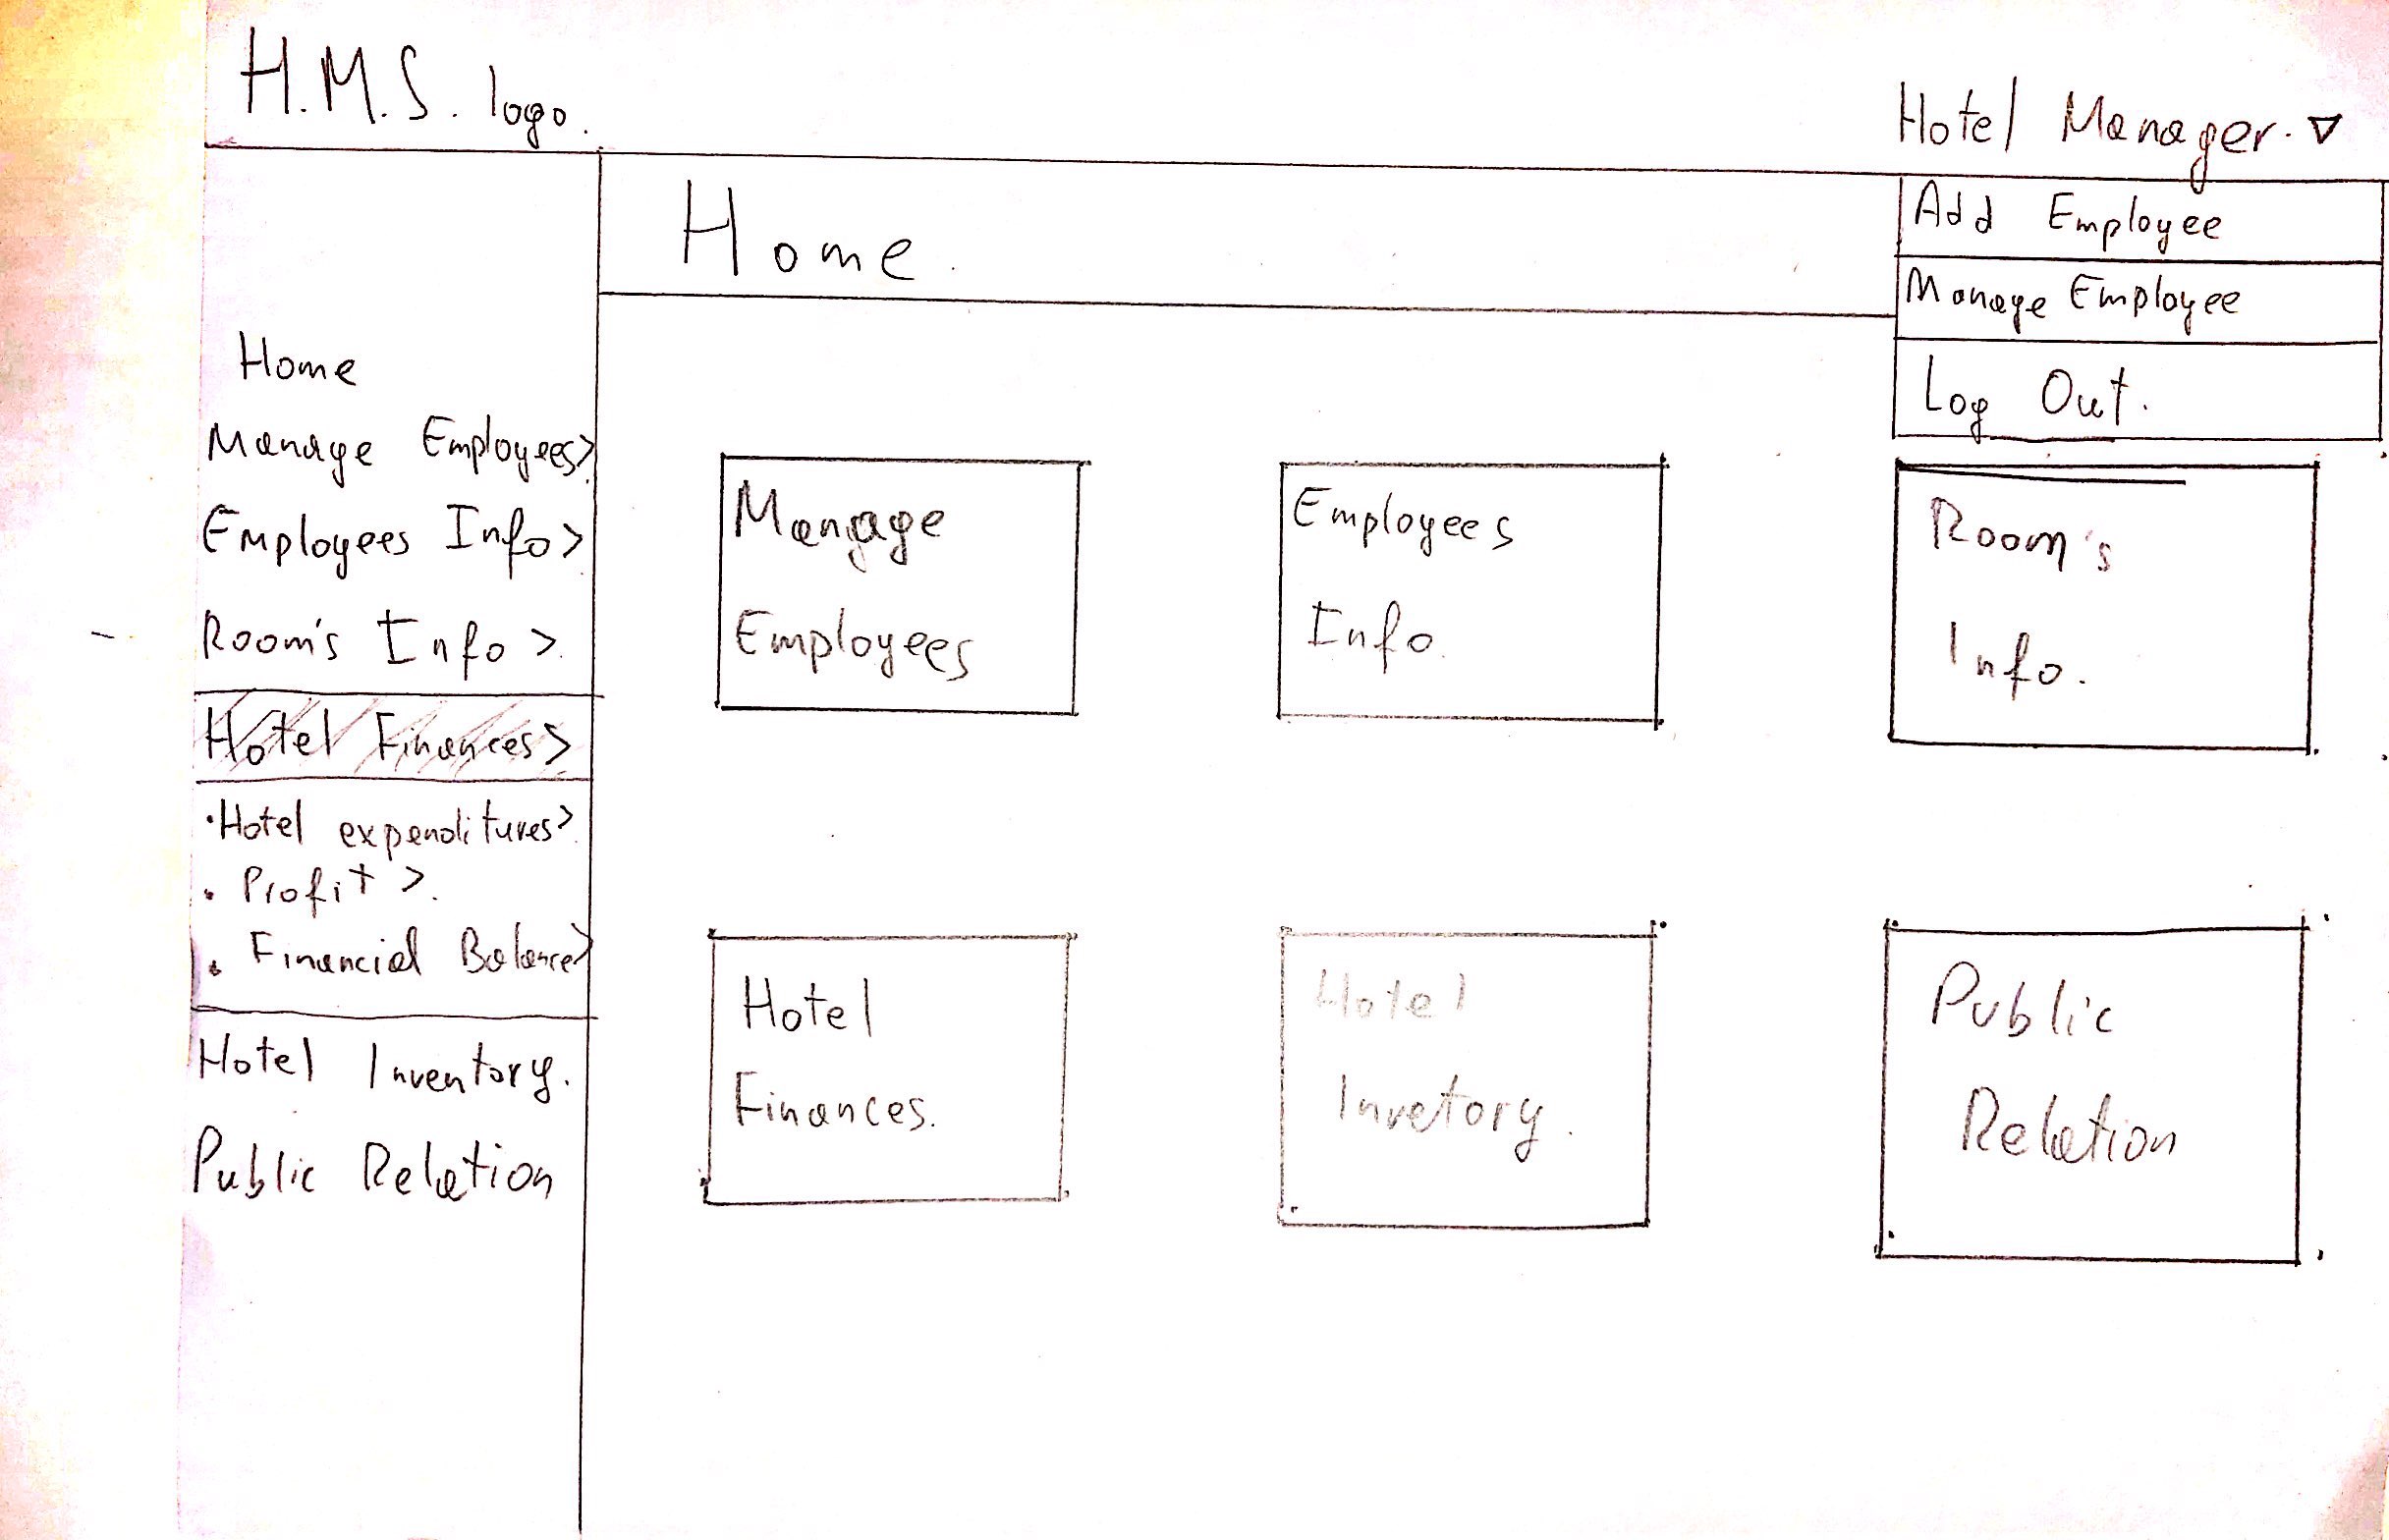 H.M.S. logo.
Hotel Manager. ▽
Add Employee
Manage Employee
Log Out.
Home.
Home
Manage Employees>
Employees Info>
Room's Info >
Hotel Finances>
• Hotel expenditures>
• Profit >.
• Financial Balance>
Hotel Inventory.
Public Relation
Manage
Employees
Employees
Info.
Room's
Info.
Hotel
Finances.
Hotel
Invetory.
Public
Relation